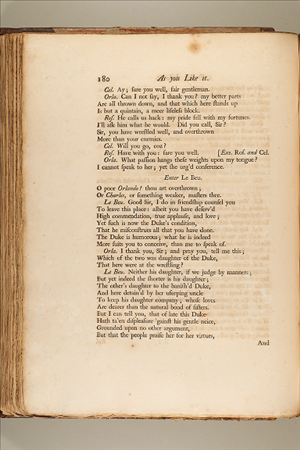 180 As you Like it.
Cel. Ay; fare you well, fair gentleman.
Orla. Can I not say, I thank you? my better parts
Are all thrown down, and that which here stands up
Is but a quintain, a meer lifeless block.
Ros. He calls us back: my pride fell with my fortunes.
I'll ask him what he would. Did you call, Sir?
Sir, you have wrestled well, and overthrown
More than your enemies.
Cel. Will you go, coz?
Ros. Have with you: fare you well. [Exe. Ros. and Cel.
Orla. What passion hangs these weights upon my tongue?
I cannot speak to her; yet she urg'd conference.
Enter Le Beu.
O poor Orlando! thou art overthrown;
Or Charles, or something weaker, masters thee.
Le Beu. Good Sir, I do in friendship counsel you
To leave this place: albeit you have deserv'd
High commendation, true applause, and love;
Yet such is now the Duke's condition,
That he misconstrues all that you have done.
The Duke is humorous; what he is indeed
More suits you to conceive, than me to speak of.
Orla. I thank you, Sir; and pray you, tell me this;
Which of the two was daughter of the Duke,
That here were at the wrestling?
Le Beu. Neither his daughter, if we judge by manners;
But yet indeed the shorter is his daughter;
The other's daughter to the banish'd Duke,
And here detain'd by her usurping uncle
To keep his daughter company; whose loves
Are dearer than the natural bond of sisters.
But I can tell you, that of late this Duke
Hath ta'en displeasure 'gainst his gentle neice,
Grounded upon no other argument,
But that the people praise her for her virtues,
And